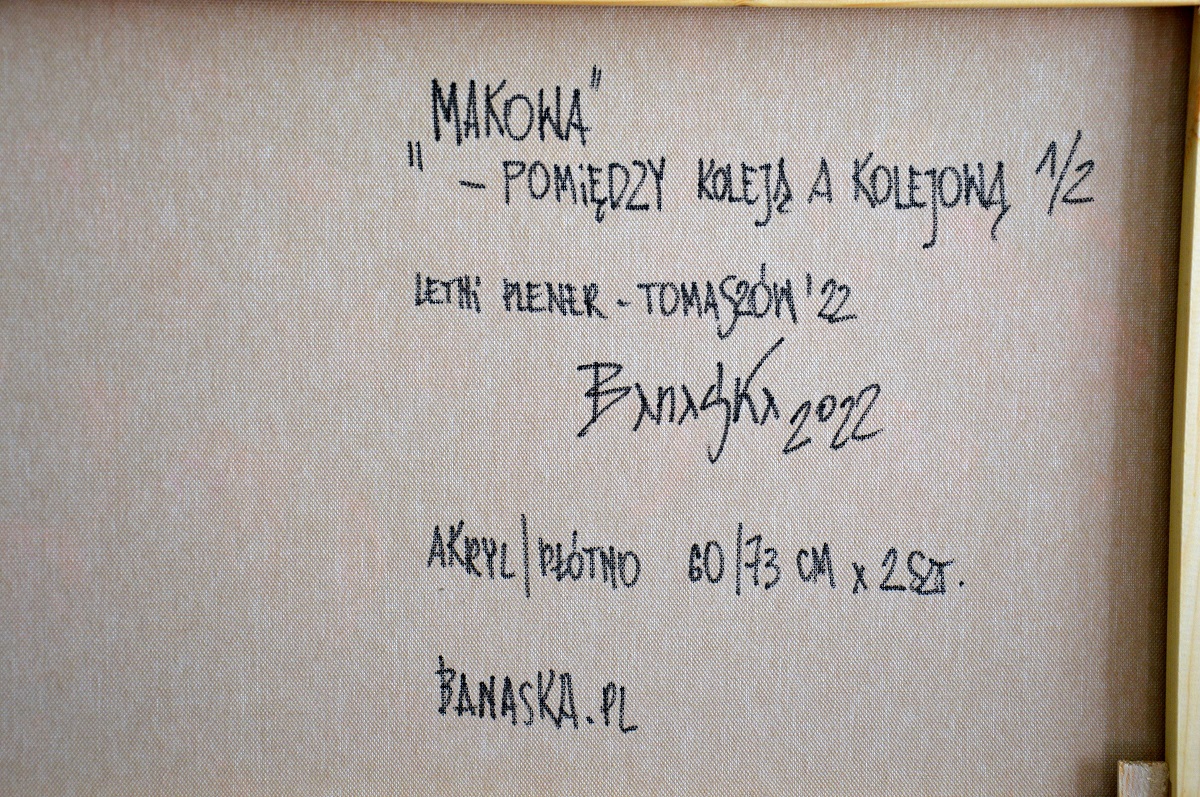 "MAKOWA"
– POMIĘDZY KOLEJĄ A KOLEJOWĄ 1/2
LETNI PLENER – TOMASZÓW '22
BANASKA 2022
AKRYL/PŁÓTNO 60/73 CM x 2 SZT.
BANASKA.PL